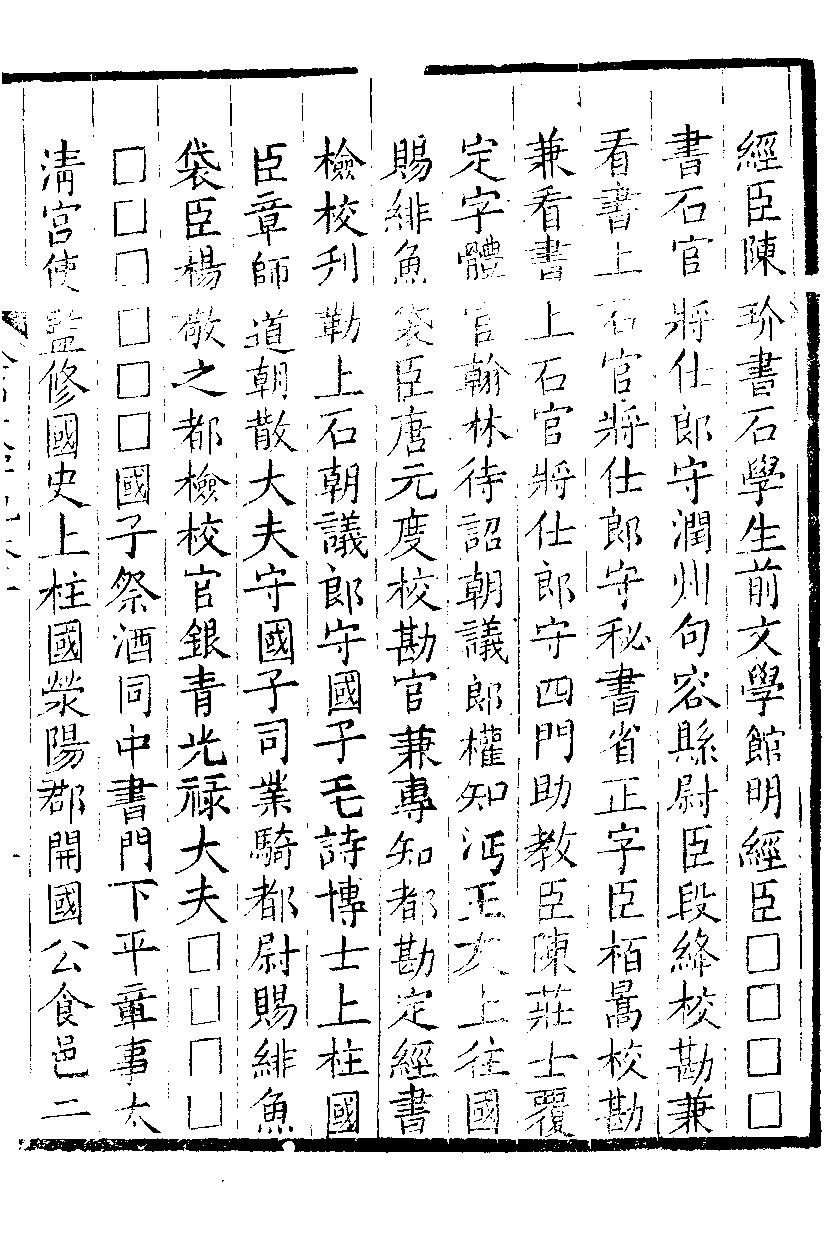 經臣陳玠書石學生前文學館明經臣□□□□
書石官將仕郎守潤州句容縣尉臣段絳校勘兼
看書上石官將仕郎守秘書省正字臣栢暠校勘
兼看書上石官將仕郎守四門助教臣陳莊士覆
定字體官翰林待詔朝議郎權知沔王友上柱國
賜緋魚袋臣唐元度校勘官兼專知都勘定經書
檢校刋勒上石朝議郎守國子毛詩博士上柱國
臣章師道朝散大夫守國子司業騎都尉賜緋魚
袋臣楊敬之都檢校官銀青光祿大夫□□□□
□□□□□□國子祭酒同中書門下平章事太
清宫使監修國史上柱國滎陽郡開國公食邑二